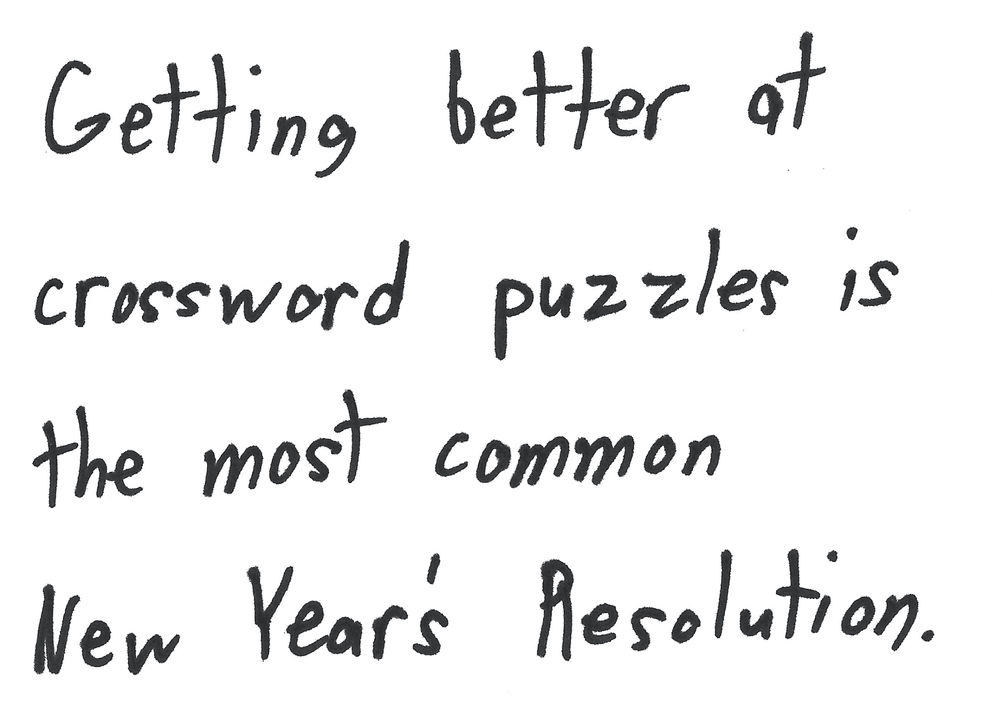 Getting better at
crossword puzzles is
the most common
New Year's Resolution.